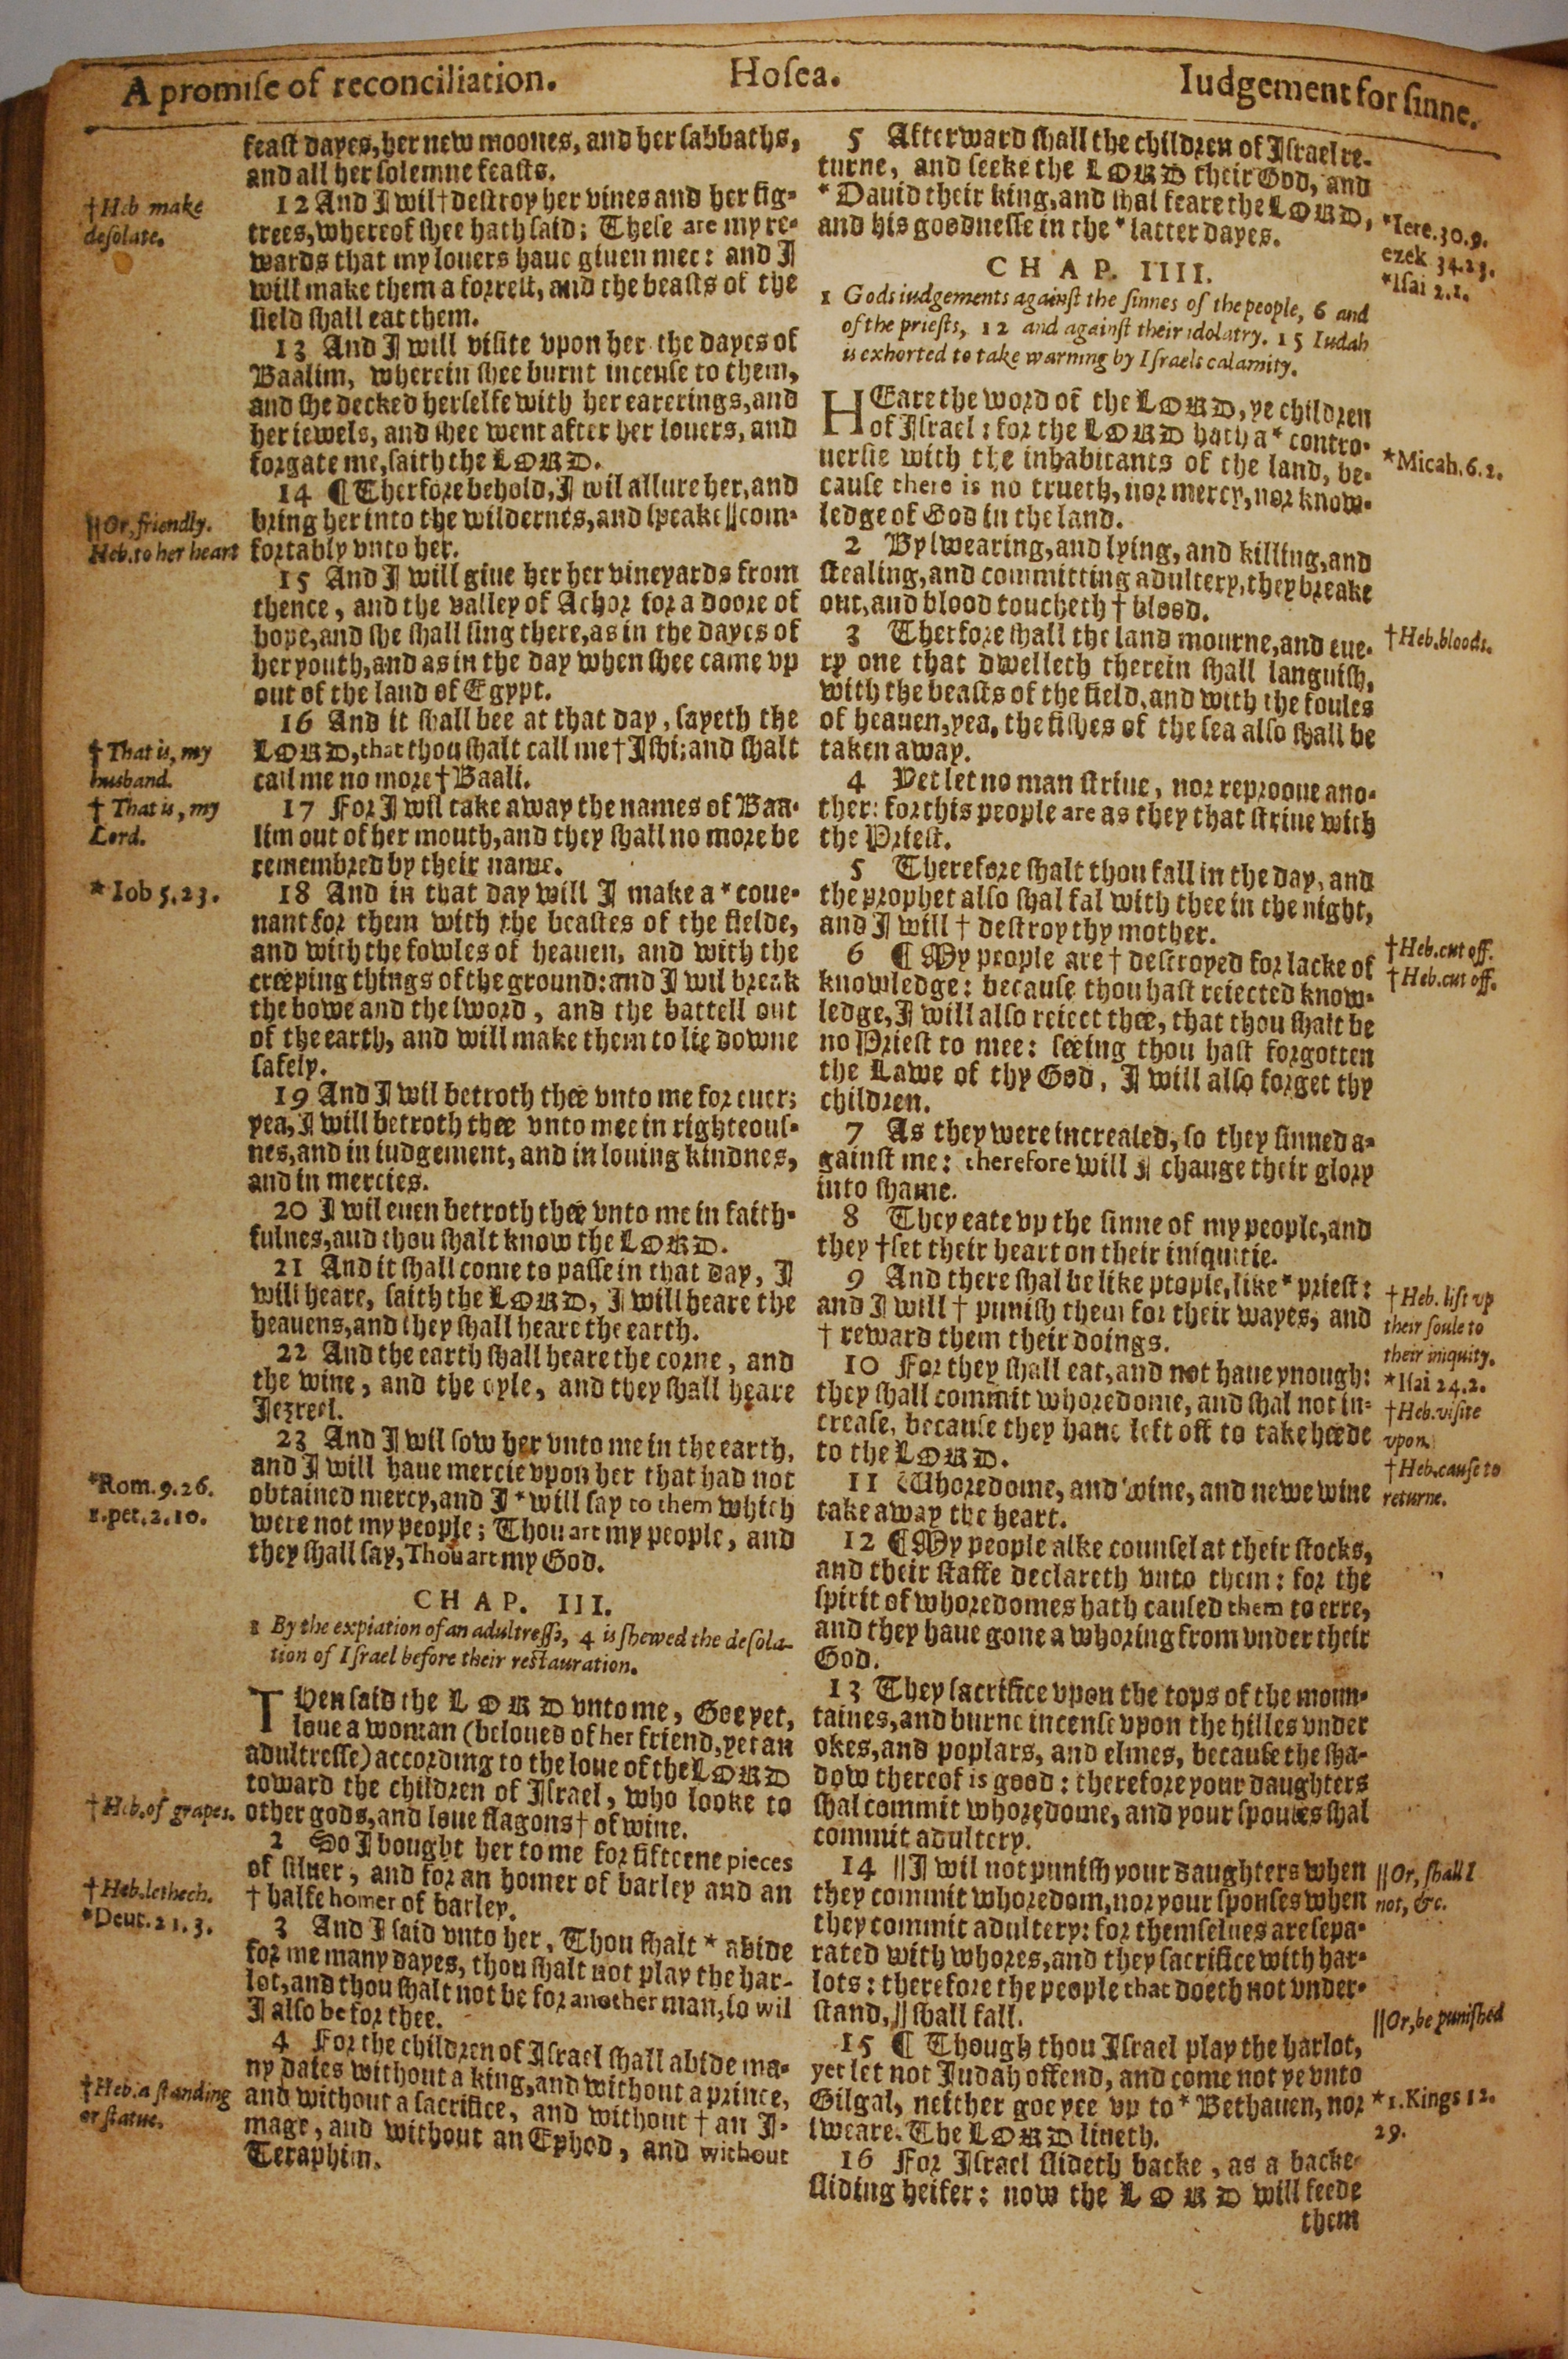 A promise of reconciliation. Hosea. Iudgement for sinne.
feast dayes, her new moones, and her sabbaths,
and all her solemne feasts.
12 And I wil † destroy her vines and her fig-
trees, whereof shee hath said; These are my re-
wards that my louers haue giuen mee: and I
will make them a forrest, and the beasts of the
field shall eat them.
13 And I will visite vpon her the dayes of
Baalim, wherein shee burnt incense to them,
and she decked herselfe with her earerings, and
her iewels, and shee went after her louers, and
forgate me, saith the LORD.
14 ¶ Therfore behold, I wil allure her, and
bring her into the wildernes, and speake || com-
fortably vnto her.
15 And I will giue her her vineyards from
thence, and the valley of Achor for a doore of
hope, and she shall sing there, as in the dayes of
her youth, and as in the day when shee came vp
out of the land of Egypt.
16 And it shall bee at that day, sayeth the
LORD, that thou shalt call me † Ishi; and shalt
call me no more † Baali.
17 For I wil take away the names of Baa-
lim out of her mouth, and they shall no more be
remembred by their name.
18 And in that day will I make a * coue-
nant for them with the beastes of the fielde,
and with the fowles of heauen, and with the
creeping things of the ground: and I wil break
the bowe and the sword, and the battell out
of the earth, and will make them to lie downe
safely.
19 And I wil betroth thee vnto me for euer;
yea, I will betroth thee vnto mee in righteous-
nes, and in iudgement, and in louing kindnes,
and in mercies.
20 I wil euen betroth thee vnto me in faith-
fulnes, and thou shalt know the LORD.
21 And it shall come to passe in that day, I
will heare, saith the LORD, I will heare the
heauens, and they shall heare the earth.
22 And the earth shall heare the corne, and
the wine, and the oyle, and they shall heare
Jezreel.
23 And I wil sow her vnto me in the earth,
and I will haue mercie vpon her that had not
obtained mercy, and I * will say to them which
were not my people; Thou art my people, and
they shall say, Thou art my God.
CHAP. III.
1 By the expiation of an adultresse, 4 is shewed the desola-
tion of Israel before their restauration.
THen said the LORD vnto me, Goe yet,
loue a woman (beloued of her friend, yet an
adultresse) according to the loue of the LORD
toward the children of Israel, who looke to
other gods, and loue flagons † of wine.
2 So I bought her to me for fifteene pieces
of siluer, and for an homer of barley and an
† halfe homer of barley.
3 And I said vnto her, Thou shalt * abide
for me many dayes, thou shalt not play the har-
lot, and thou shalt not be for another man, so wil
I also be for thee.
4 For the children of Israel shall abide ma-
ny daies without a king, and without a prince,
and without a sacrifice, and without † an I-
mage, and without an Ephod, and without
Teraphim.
† Heb make
desolate.
|| Or, friendly.
Heb. to her heart
† That is, my
husband.
† That is, my
Lord.
* Iob 5.23.
*Rom.9.26.
1.pet.2.10.
† Heb. of grapes.
† Heb. lethech.
*Deut.21.3.
† Heb. a standing
or statue.
5 Afterward shall the children of Israel re-
turne, and seeke the LORD their God, and
* Dauid their king, and shal feare the LORD,
and his goodnesse in the * latter dayes.
CHAP. IIII.
1 Gods iudgements against the sinnes of the people, 6 and
of the priests, 12 and against their idolatry. 15 Iudah
is exhorted to take warning by Israels calamity.
HEare the word of the LORD, ye children
of Israel: for the LORD hath a * contro-
uersie with the inhabitants of the land, be-
cause there is no trueth, nor mercy, nor know-
ledge of God in the land.
2 By swearing, and lying, and killing, and
stealing, and committing adultery, they breake
out, and blood toucheth † blood.
3 Therfore shall the land mourne, and eue-
ry one that dwelleth therein shall languish,
with the beasts of the field, and with the foules
of heauen, yea, the fishes of the sea also shall be
taken away.
4 Yet let no man striue, nor reprooue ano-
ther: for this people are as they that striue with
the Priest.
5 Therefore shalt thou fall in the day, and
the prophet also shal fal with thee in the night,
and I will † destroy thy mother.
6 ¶ My people are † destroyed for lacke of
knowledge: because thou hast reiected know-
ledge, I will also reiect thee, that thou shalt be
no Priest to mee: seeing thou hast forgotten
the Lawe of thy God, I will also forget thy
children.
7 As they were increased, so they sinned a-
gainst me: therefore will I change their glory
into shame.
8 They eate vp the sinne of my people, and
they † set their heart on their iniquitie.
9 And there shal be like people, like * priest:
and I will † punish them for their wayes, and
† reward them their doings.
10 For they shall eat, and not haue ynough:
they shall commit whoredome, and shal not in-
crease, because they haue left off to take heede
to the LORD.
11 Whoredome, and wine, and newe wine
take away the heart.
12 ¶ My people aske counsel at their stocks,
and their staffe declareth vnto them: for the
spirit of whoredomes hath caused them to erre,
and they haue gone a whoring from vnder their
God.
13 They sacrifice vpon the tops of the moun-
taines, and burne incense vpon the hilles vnder
okes, and poplars, and elmes, because the sha-
dow thereof is good: therefore your daughters
shal commit whoredome, and your spouses shal
commit adultery.
14 || I wil not punish your daughters when
they commit whoredom, nor your spouses when
they commit adultery: for themselues are sepa-
rated with whores, and they sacrifice with har-
lots: therefore the people that doeth not vnder-
stand, || shall fall.
15 ¶ Though thou Israel play the harlot,
yet let not Iudah offend, and come not ye vnto
Gilgal, neither goe yee vp to * Bethauen, nor
sweare, The LORD liueth.
16 For Israel slideth backe, as a backe-
sliding heifer: now the LORD will feede
them
*Iere.30.9.
ezek 34.23.
*Isai 2.1.
*Micah.6.2.
† Heb. bloods.
† Heb. cut off.
† Heb. cut off.
† Heb. lift vp
their soule to
their iniquity.
*Isai 24.2.
† Heb. visite
vpon.
† Heb. cause to
returne.
|| Or, shall I
not, &c.
|| Or, be punished
*1. Kings 12.
29.